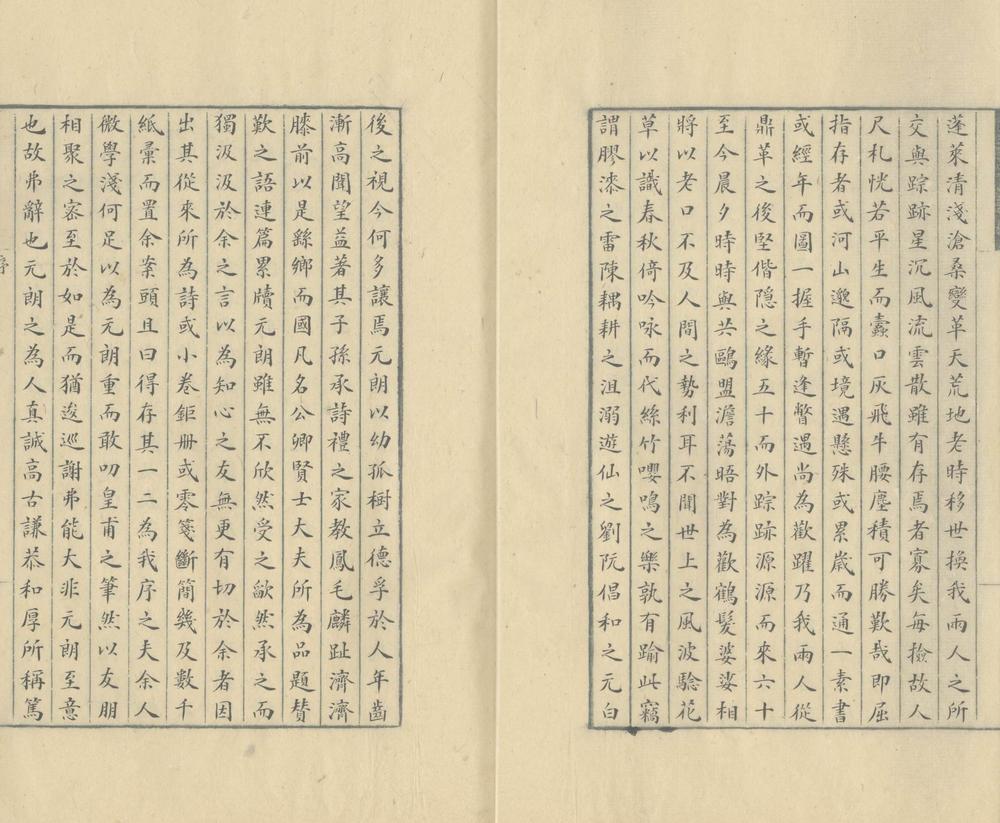 蓬萊清淺滄桑變革天荒地老時移世換我兩人之所
交與踪跡星沉風流雲散雖有存焉者寡矣每撿故人
尺札恍若平生而蠹口灰飛牛腰塵積可勝歎哉即屈
指存者或河山邈隔或境遇懸殊或累歲而通一素書
或經年而圖一握手暫逢瞥遇尚為歡躍乃我兩人從
鼎革之後堅偕隱之緣五十而外踪跡源源而來六十
至今晨夕時時與共鷗盟澹蕩晤對為歡鶴髮婆娑相
將以老口不及人間之勢利耳不聞世上之風波騐花
草以識春秋倚吟咏而代絲竹嚶鳴之樂孰有踰此竊
謂膠漆之雷陳耦耕之沮溺遊仙之劉阮倡和之元白
後之視今何多讓焉元朗以幼孤樹立德孚於人年齒
漸高聞望益著其子孫承詩禮之家教鳳毛麟趾濟濟
膝前以是繇鄉而國凡名公卿賢士大夫所為品題贊
歎之語連篇累牘元朗雖無不欣然受之歙然承之而
獨汲汲於余之言以為知心之友無更有切於余者因
出其從來所為詩或小卷鉅冊或零箋斷簡幾及數千
紙彙而置余案頭且曰得存其一二為我序之夫余人
微學淺何足以為元朗重而敢叨皇甫之筆然以友朋
相聚之密至於如是而猶逡巡謝弗能大非元朗至意
也故弗辭也元朗之為人真誠高古謙恭和厚所稱篤
序